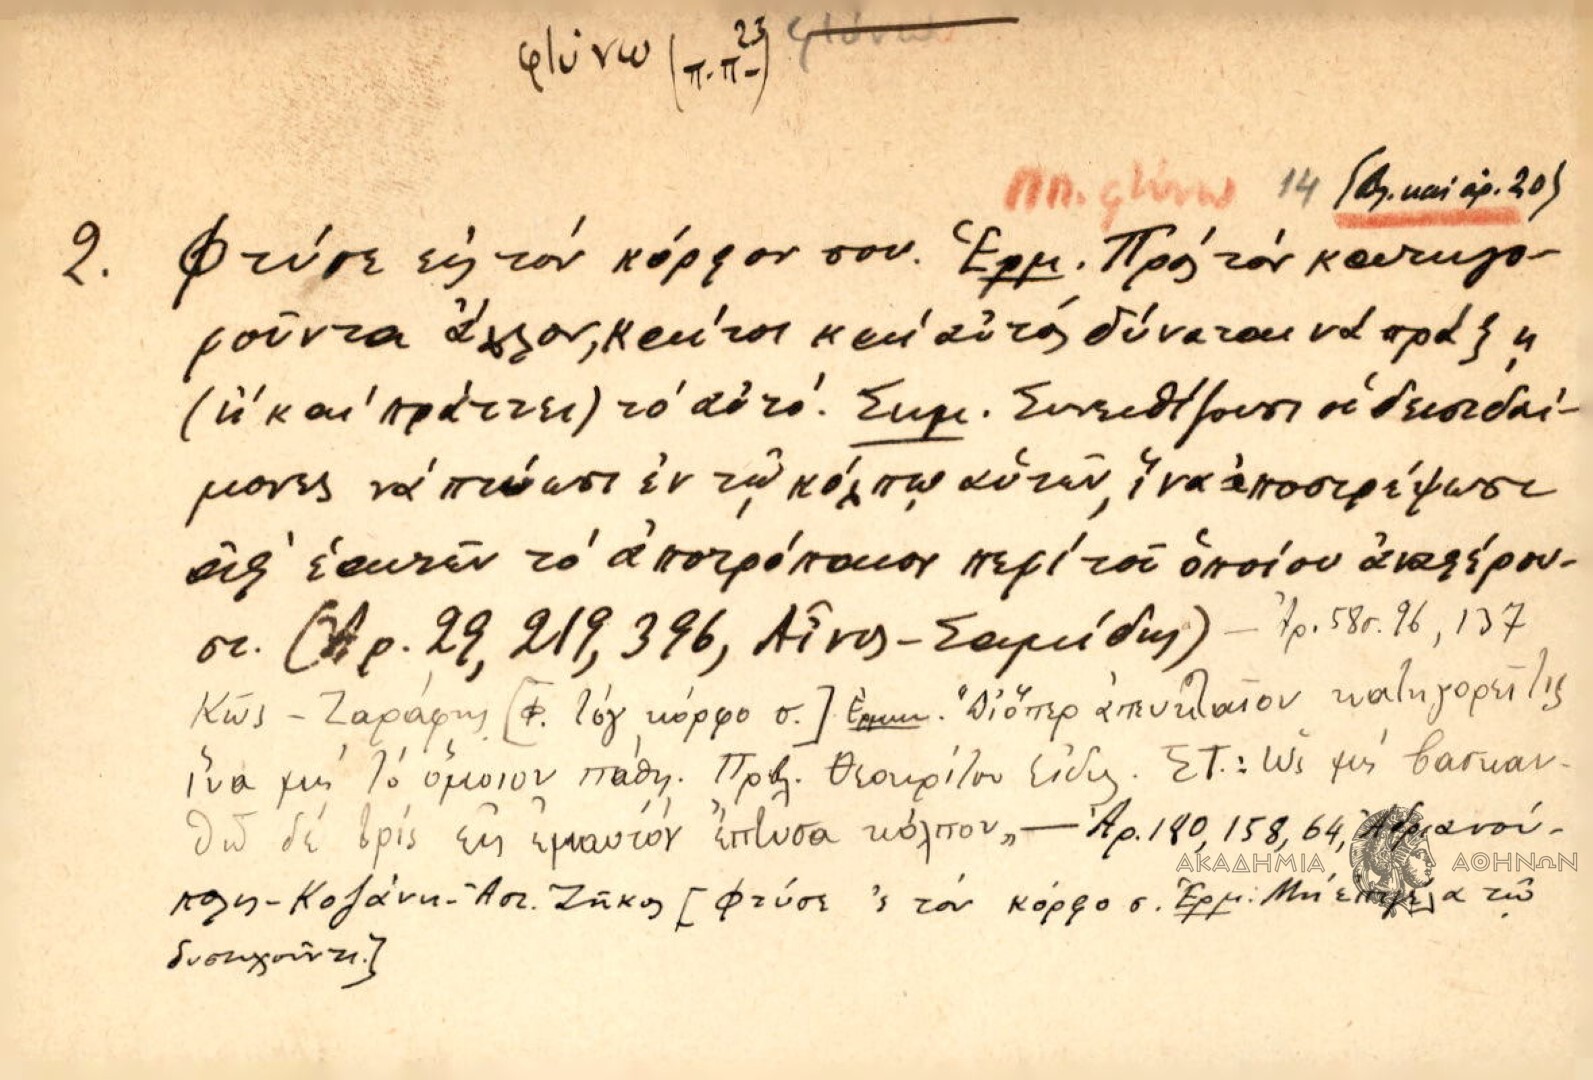 φτύνω (π.π. 23) φτύνω
Ππ. φτύνω 14 (βλ. καί ἀρ. 20)
2. Φτύσε εἰς τόν κόρφον σου. Ἑρμ. Πρός τόν κατηγο-
ροῦντα ἄλλον, καίτοι καί αὐτός δύναται νά πράξῃ
(ἤ καί πράττει) τό αὐτό. Σημ. Συνειθίζουσι οἱ δεισιδαί-
μονες νά πτύωσι ἐν τῷ κόλπῳ αὐτῶν, ἵνα ἀποστρέψωσι
ἀφ' ἑαυτῶν τό ἀποτρόπαιον περί τοῦ ὁποίου ἀναφέρου-
σι. (Ἀρ. 29, 219, 396, Αἶνος - Σαμίδης) — Ἀρ. 58 σ. 96, 137
Κῶς - Ζαράφτης [Φ. τόγ κόρφο σ.] Ἑρμ. "Διόπερ ἀπευκταῖον κατηγορεῖ τις
ἵνα μή τό ὅμοιον πάθῃ. Πρβλ. Θεοκρίτου εἰδυλ. ΣΤ.: Ὡς μή βασκαν-
θῶ δέ τρίς εἰς ἐμαυτόν ἔπτυσα κόλπον„ — Ἀρ. 180, 158, 64, Ἀδριανού-
πολις - Κοζάνη - Ἀστ. Ζῆκος [Φτύσε 'ς τόν κόρφο σ. Ἑρμ. Μή ἐπιγέλα τῷ
δυστυχοῦντι.]
ΑΚΑΔΗΜΙΑ ΑΘΗΝΩΝ